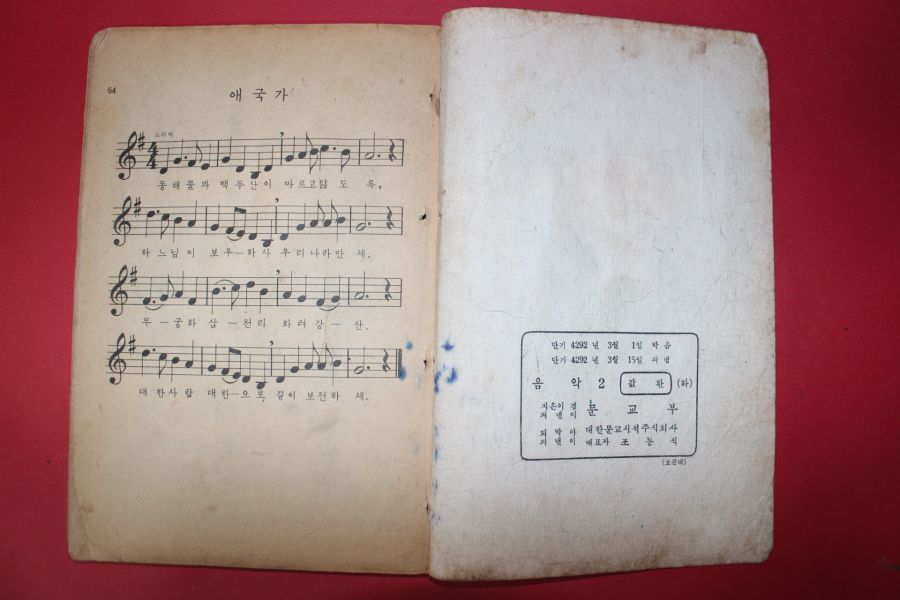 64
애 국 가
느리게
4
4
동해물과 백두산이 마르고닳 도 록,
하느님이 보우—하사 우리나라만 세.
무—궁화 삼—천리 화려강—산.
대한사람 대한—으로 길이 보전하 세.
단기 4292 년 3월 1일 박음
단기 4292 년 3월 15일 펴냄
음 악 2 값 환 (하)
지은이 겸
펴낸이 문 교 부
박아
펴낸이 대한문교서적주식회사
대표자 조 동 식
(보진재)